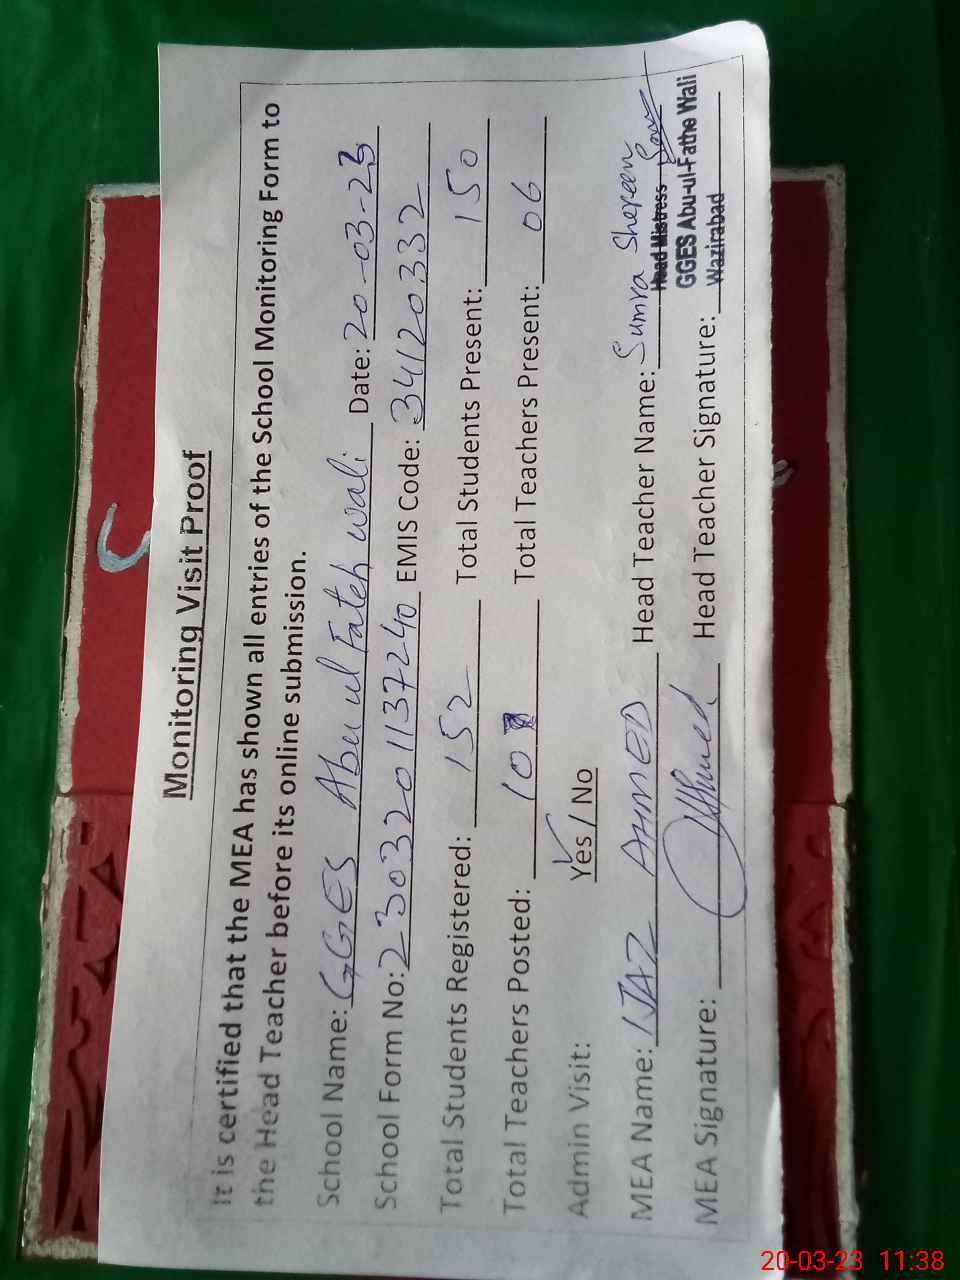 Monitoring Visit Proof
It is certified that the MEA has shown all entries of the School Monitoring Form to
the Head Teacher before its online submission.
School Name: GGES Abu ul Fateh wali Date: 20-03-23
School Form No: 2303320 1137240 EMIS Code: 34120332
Total Students Registered: 152 Total Students Present: 150
Total Teachers Posted: 10 Total Teachers Present: 06
Admin Visit: Yes / No
MEA Name: IJAZ AHMED Head Teacher Name: Sumra Shereen
MEA Signature: Ahmed Head Teacher Signature:
Head Mistress
GGES Abu-ul-Fathe Wali
Wazirabad
20-03-23 11:38